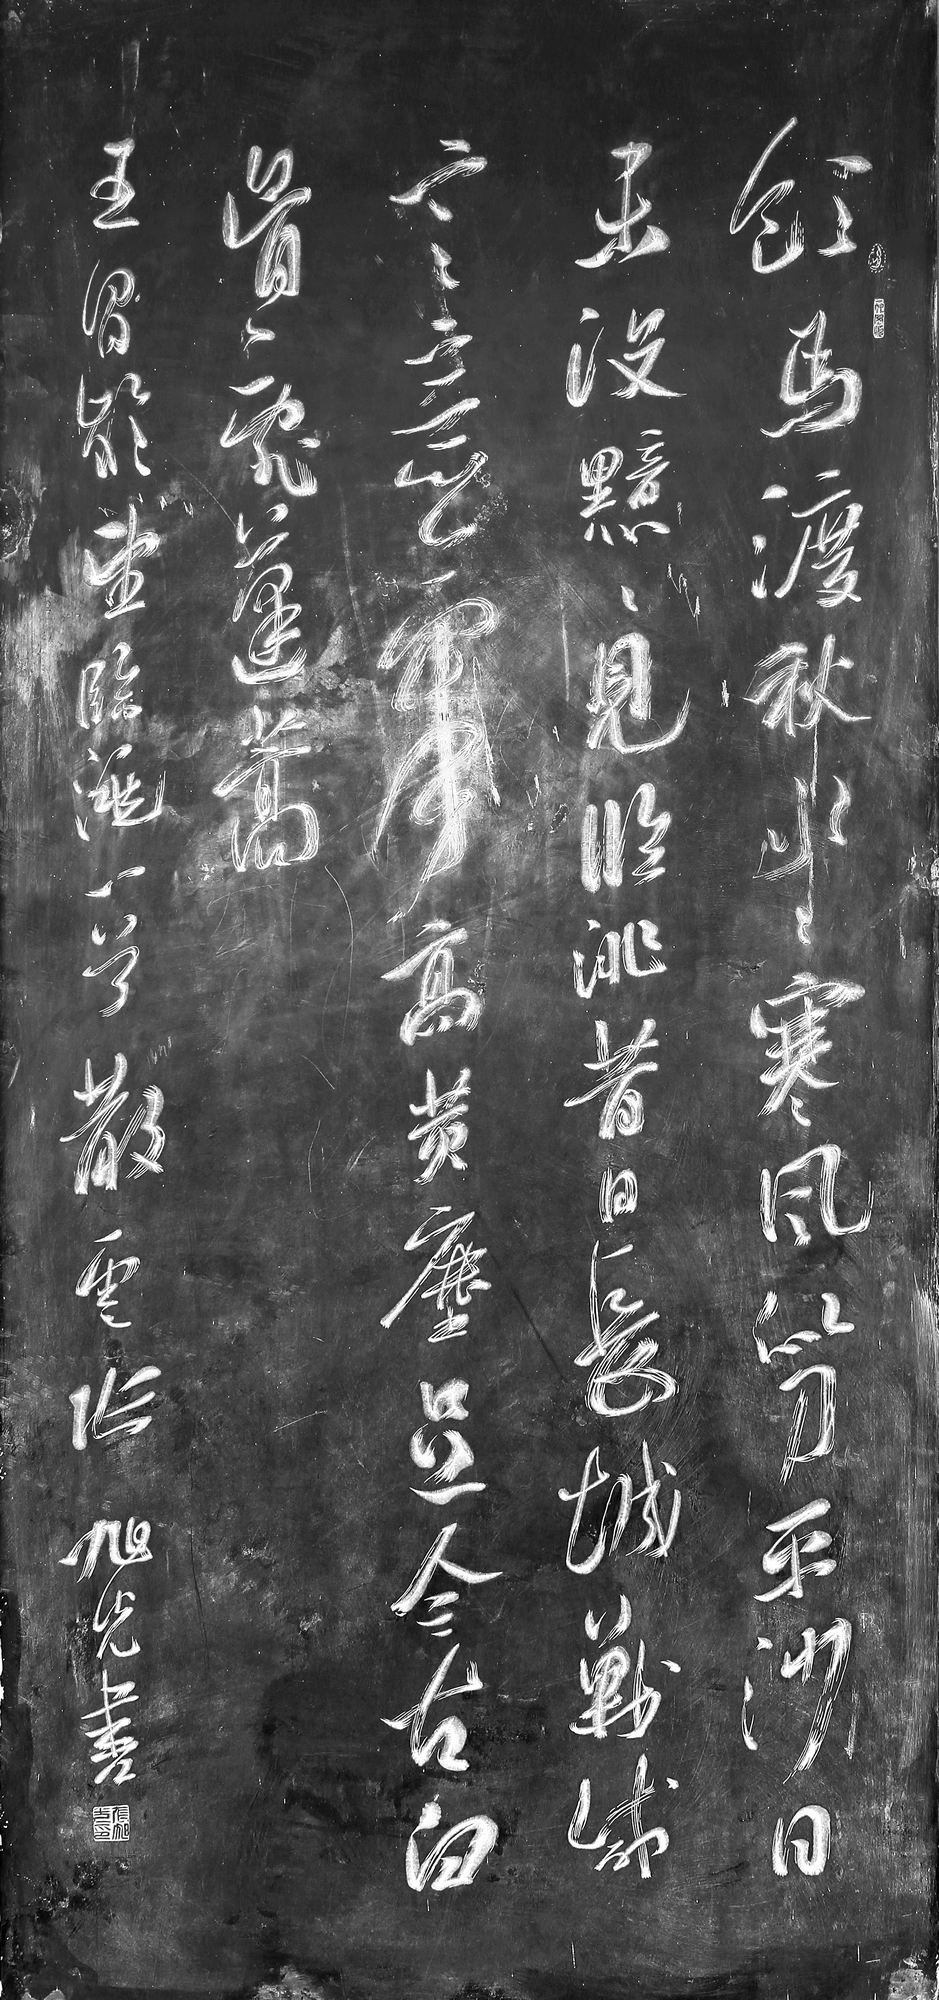 飲馬渡秋水〻寒風似刀平沙日
未没黯〻見臨洮昔日長城戰咸
言意氣高黄塵足今古白
骨亂蓬蒿
王昌齡望臨洮一首 散雲張旭光書